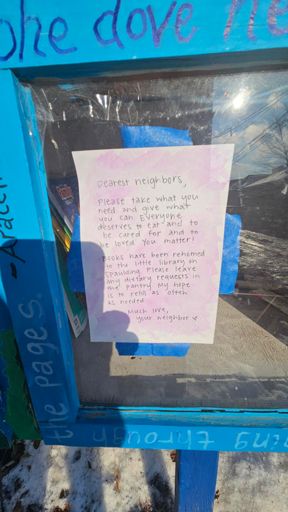 she dove he
Dearest neighbors,
Please take what you
need and give what
you can. Everyone
deserves to eat and to
be cared for and to
be loved. You matter!
Books have been rehomed
to the little library on
Spaulding. Please leave
any dietary requests in
the pantry. My hope
is to refill as often
as needed.
Much love,
your neighbor
the pages.
ing through